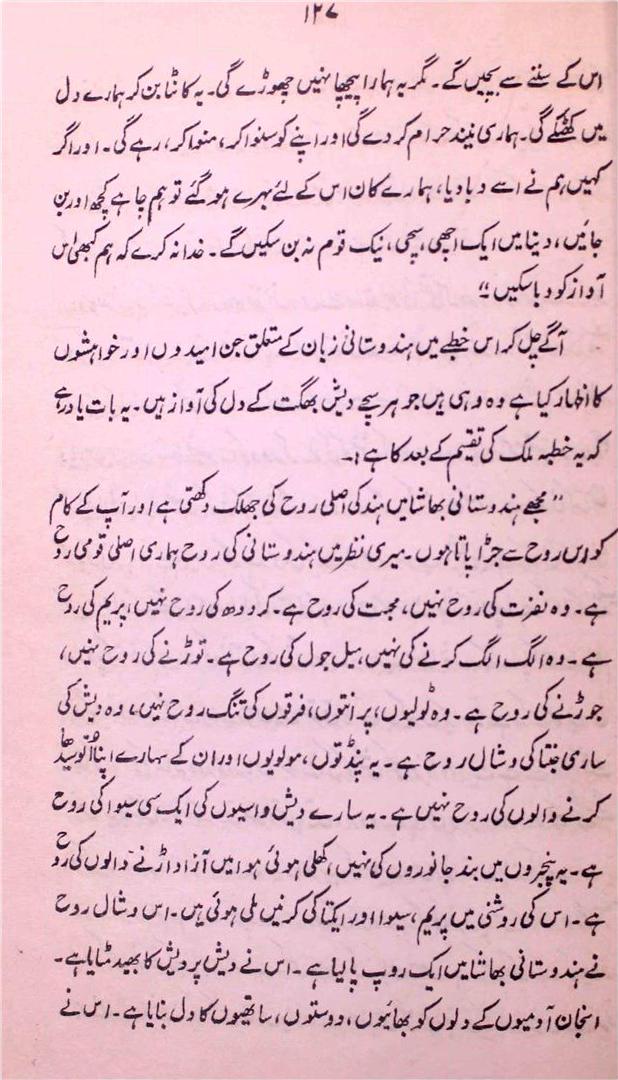 ۱۲۷
اس کے سننے سے بچیں گے۔ مگر یہ ہمارا پیچھا نہیں چھوڑے گی۔ یہ کانٹا بن کر ہمارے دل
میں کھٹکے گی۔ ہماری نیند حرام کر دے گی اور اپنے کو سنوا کر، منوا کر، رہے گی۔ اور اگر
کہیں ہم نے اسے دبا دیا، ہمارے کان اس کے لئے بہرے ہو گئے تو ہم چاہے کچھ اور بن
جائیں، دنیا میں ایک اچھی، سچی، نیک قوم نہ بن سکیں گے۔ خدا نہ کرے کہ ہم کبھی اس
آواز کو دبا سکیں“
آگے چل کر اس خطبے میں ہندوستانی زبان کے متعلق جن امیدوں اور خواہشوں
کا اظہار کیا ہے وہ وہی ہیں جو ہر سچے دیش بھگت کے دل کی آواز ہیں۔ یہ بات یاد رہے
کہ یہ خطبہ ملک کی تقسیم کے بعد کا ہے:۔
”مجھے ہندوستانی بھاشا میں ہند کی اصلی روح کی جھلک دکھتی ہے اور آپ کے کام
کو اس روح سے جڑا پاتا ہوں۔ میری نظر میں ہندوستانی کی روح ہماری اصلی قومی روح
ہے۔ وہ نفرت کی روح نہیں، محبت کی روح ہے۔ کرودھ کی روح نہیں، پریم کی روح
ہے۔ وہ الگ الگ کرنے کی نہیں، میل جول کی روح ہے۔ توڑنے کی روح نہیں،
جوڑنے کی روح ہے۔ وہ ٹولیوں، پرانتوں، فرقوں کی تنگ روح نہیں، وہ دیش کی
ساری جنتا کی وشال روح ہے۔ یہ پنڈتوں، مولویوں اور ان کے سہارے اپنا الّو سیدھا
کرنے والوں کی روح نہیں ہے۔ یہ سارے دیش واسیوں کی ایک سی سیوا کی روح
ہے۔ یہ پنجروں میں بند جانوروں کی نہیں، کھلی ہوئی ہوا میں آزاد اڑنے والوں کی روح
ہے۔ اس کی روشنی میں پریم، سیوا اور ایکتا کی کرنیں ملی ہوئی ہیں۔ اس وشال روح
نے ہندوستانی بھاشا میں ایک روپ پا لیا ہے۔ اس نے دیش پردیش کا بھید مٹایا ہے۔
انجان آدمیوں کے دلوں کو بھائیوں، دوستوں، ساتھیوں کا دل بنایا ہے۔ اس نے